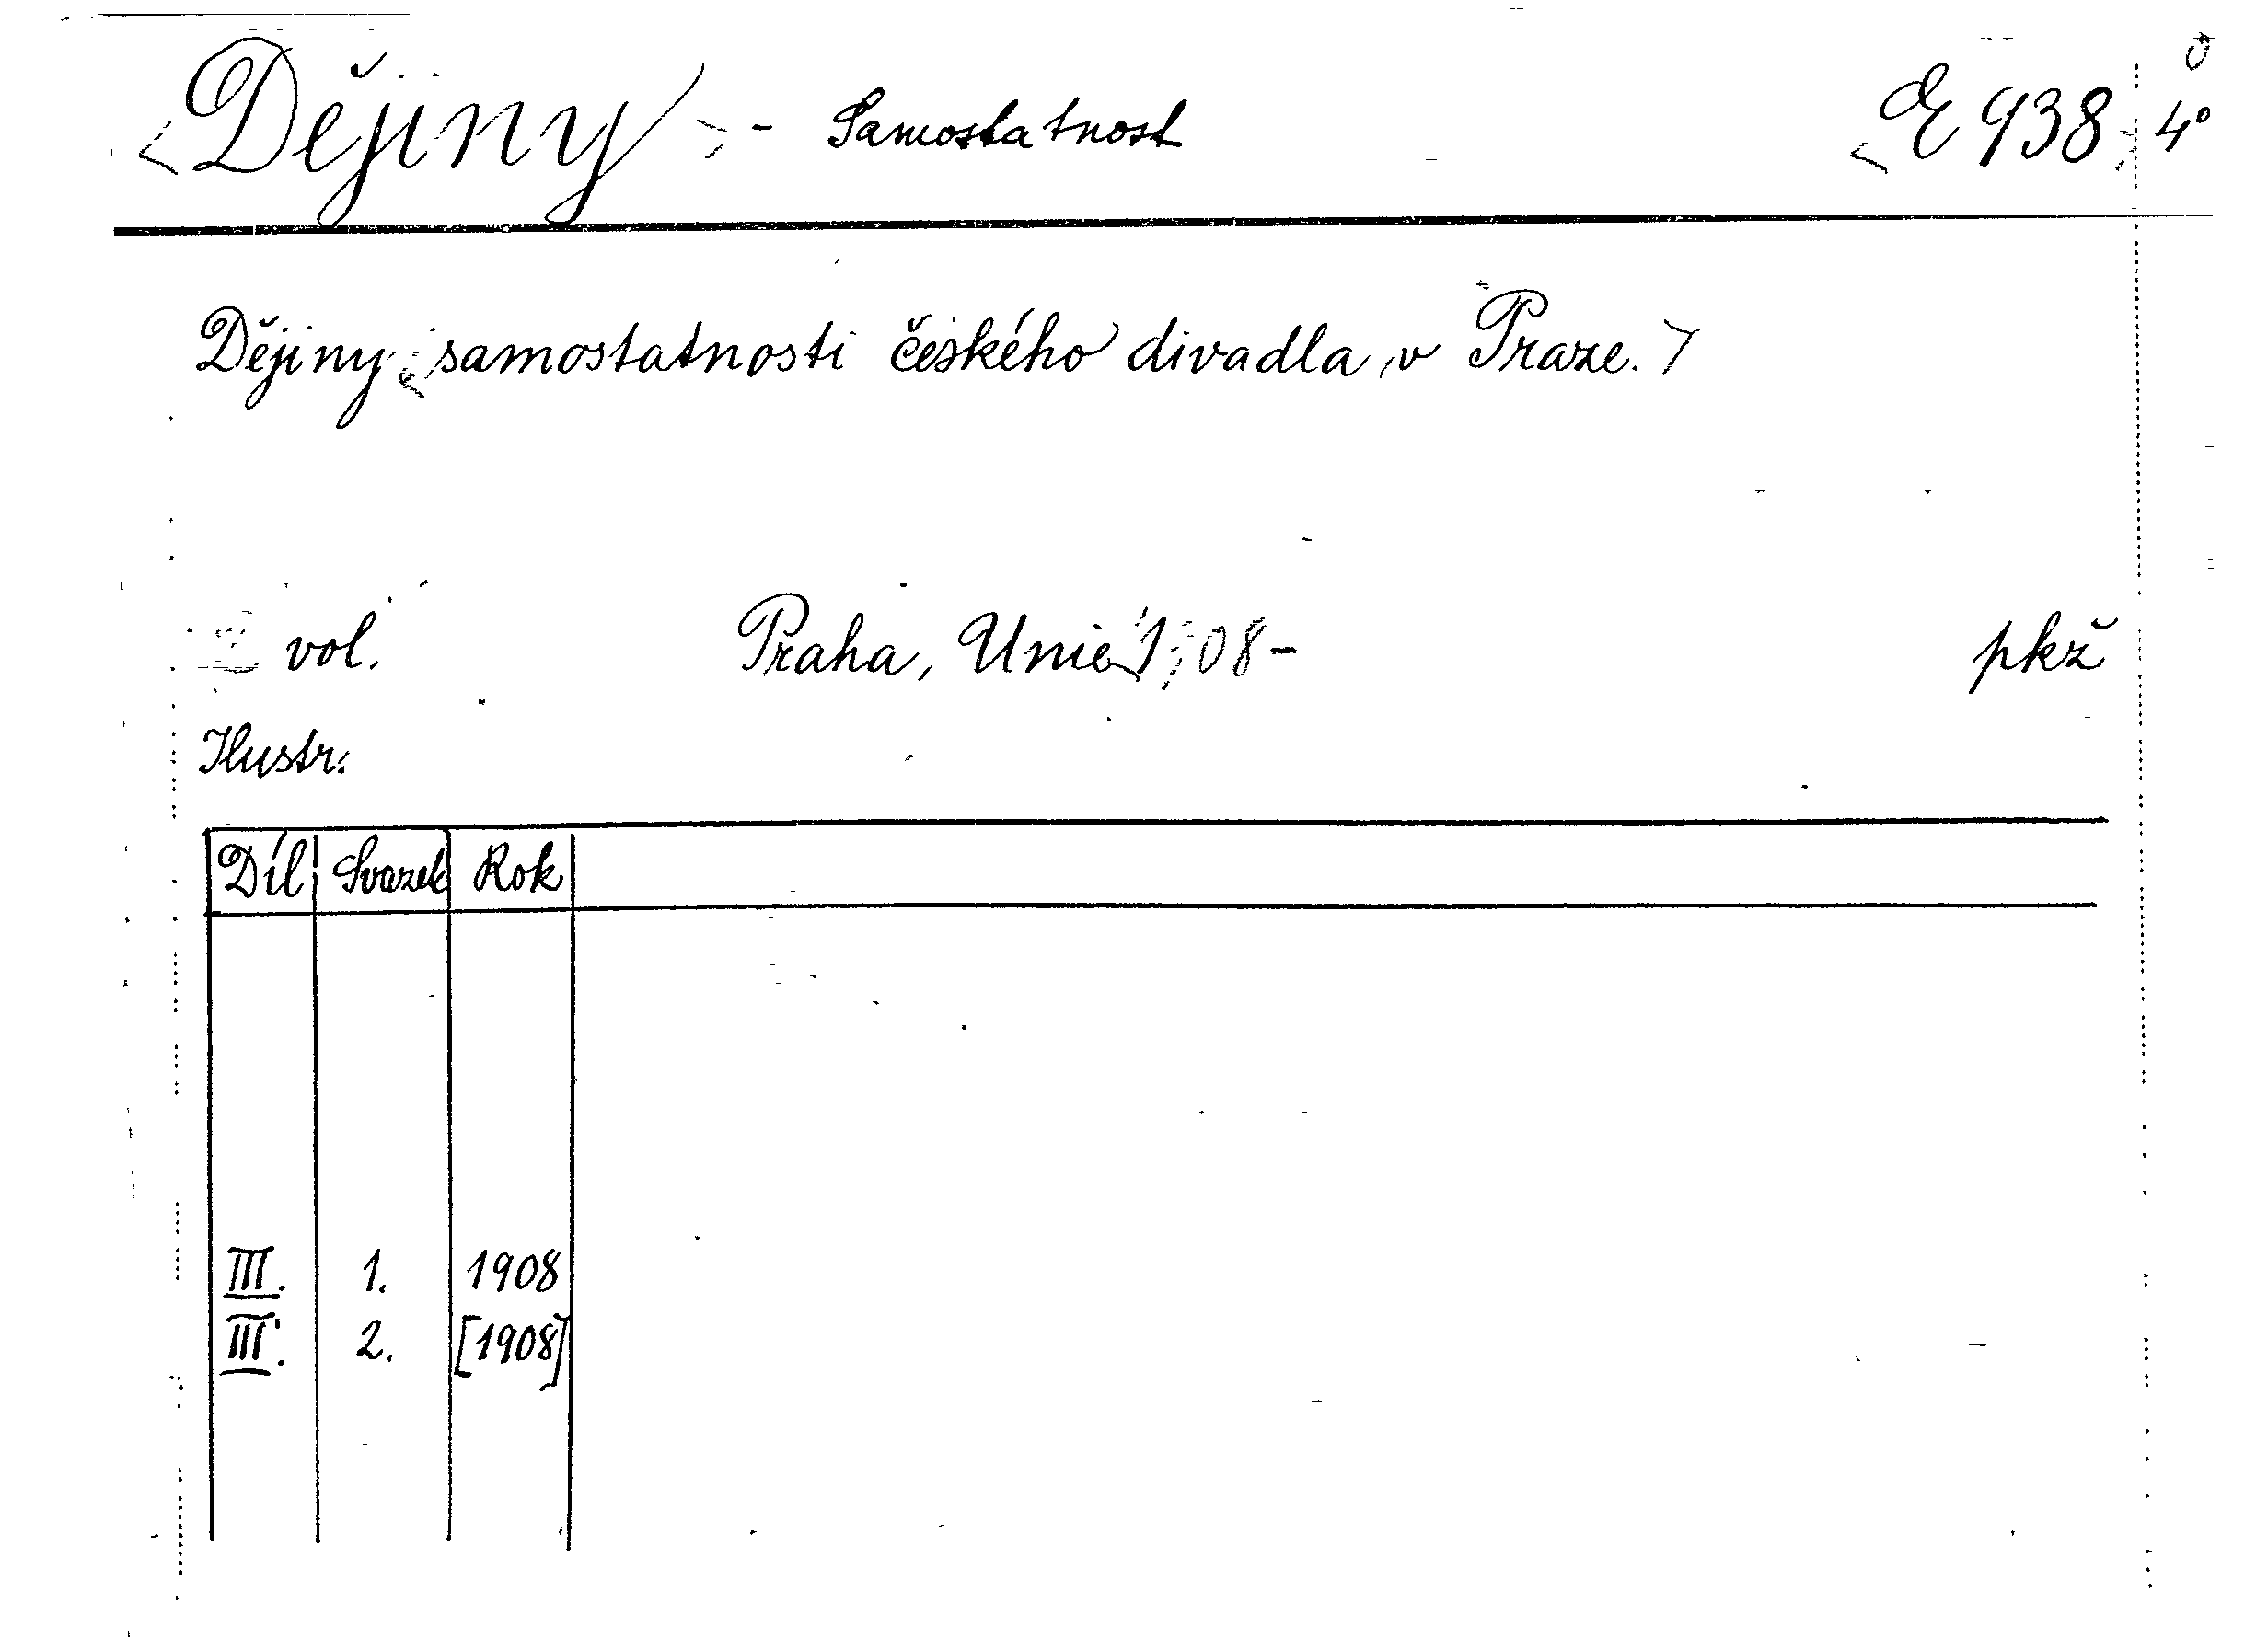 <Dějiny> - Samostatnost <E 938> 4°
Dějiny <samostatnosti českého divadla v Praze.>
vol. Praha, Unie 1908- pkž
Ilustr.
Díl Svazek Rok
III. 1. 1908
III. 2. [1908]